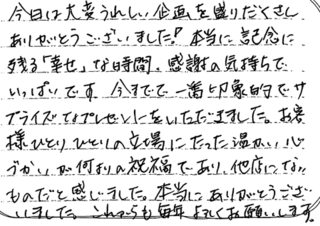 今日は大変うれしい企画を盛りだくさん
ありがとうございました!本当に記念に
残る「幸せ」な時間、感謝の気持ちで
いっぱいです 今までで一番印象的でサ
プライズなプレゼントをいただきました。お客
様ひとりひとりの立場にたった温かい心
づかいが何よりの祝福であり、他店にない
ものだと感じました。本当にありがとうござ
いました。これからも毎年よろしくお願いします。